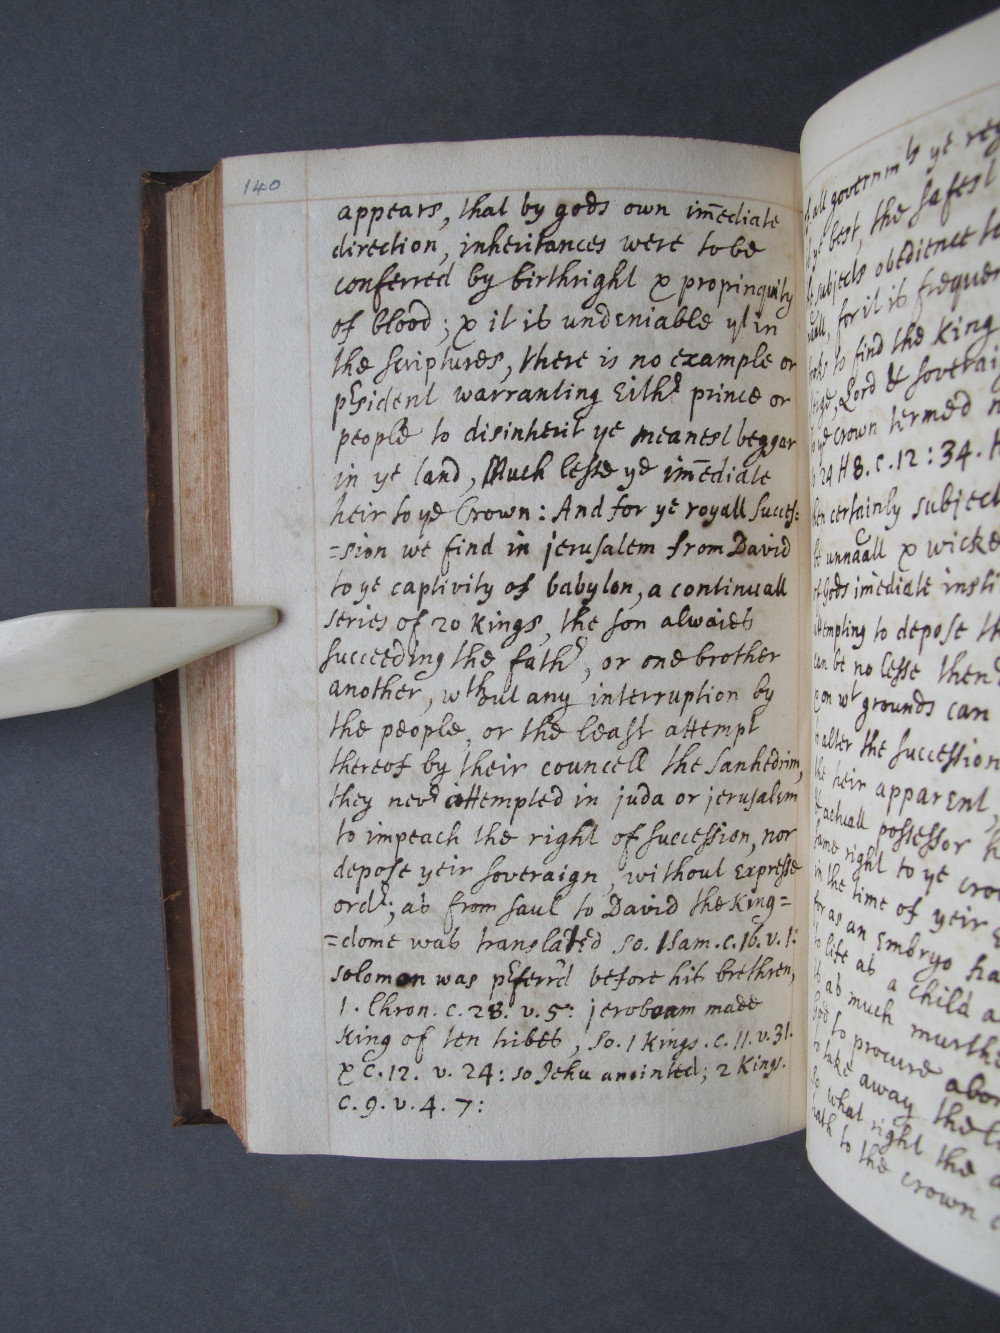 140
appears, that by gods own im̄ediate
direction, inheritances were to be
conferred by birthright & propinquity
of blood; & it is undeniable yt in
the scriptures, there is no example or
psident warranting Eithr prince or
people to disinherit ye meanest beggar
in ye land, Much lesse ye im̄ediate
heir to ye Crown: And for ye royall succes:
=sion we find in jerusalem from David
to ye captivity of babylon, a continuall
series of 20 kings, the son alwaies
succeeding the fathr, or one brother
another, wthout any interruption by
the people, or the least attempt
thereof by their councell the sanhedrim,
they nevr attempted in juda or jerusalem
to impeach the right of succession, nor
depose yeir soveraign, without Expresse
ordr; as from saul to David the King=
=dome was translated so. 1 sam. c. 16. v. 1:
solomon was pferr'd before his brethren,
1. Chron. c. 28. v. 5: jeroboam made
king of ten tribes, so. 1 kings. c. 11. v. 31.
& c. 12. v. 24: so Jehu anointed; 2 Kings.
c. 9. v. 4. 7:
all governmts ye
best, the safest
subjects obedience
for it is
to find the King
Lord & soverai
crown termed
24 H 8. c. 12: 34.
certainly subject
unnāall & wicke
Gods im̄ediate insti
to depose
can be no lesse then
on wt grounds can
alter the succession
the heir apparent
actuall possessor
same right to ye crow
in the time of yeir
for as an Embryo ha
life as a child a
as much murthe
to procure abor
take away the
what right the
to the crown